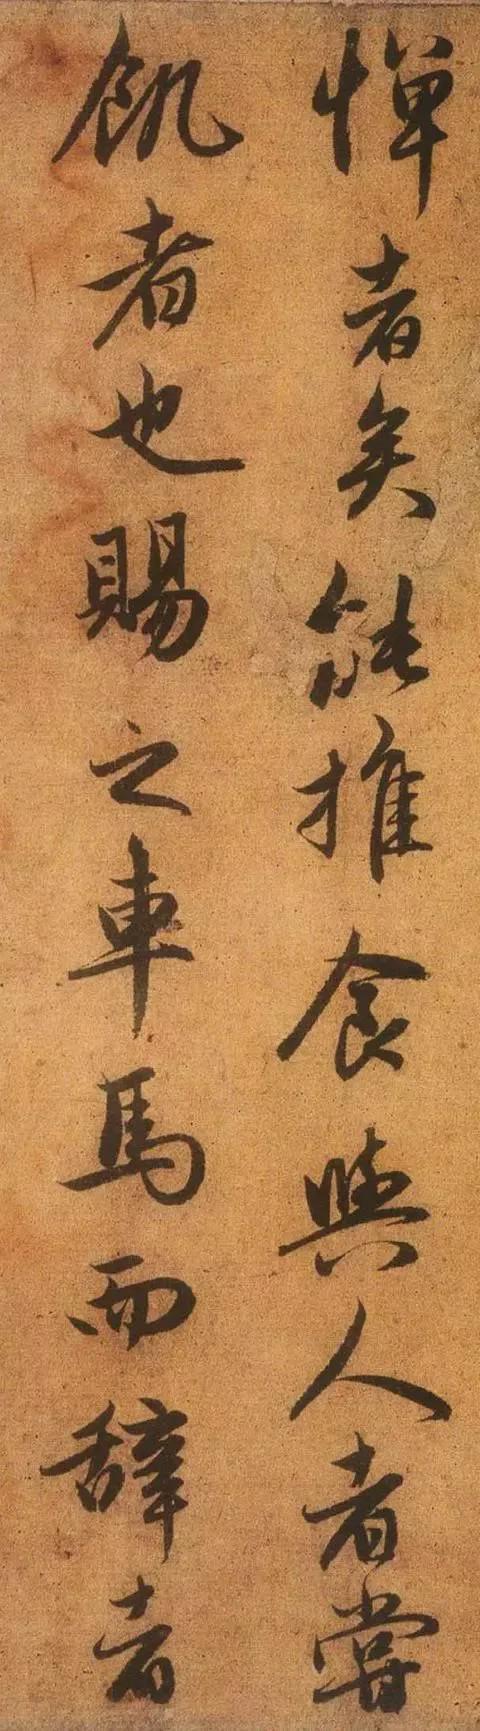 惮者矣能推食与人者尝
飢者也賜之車馬而辞者